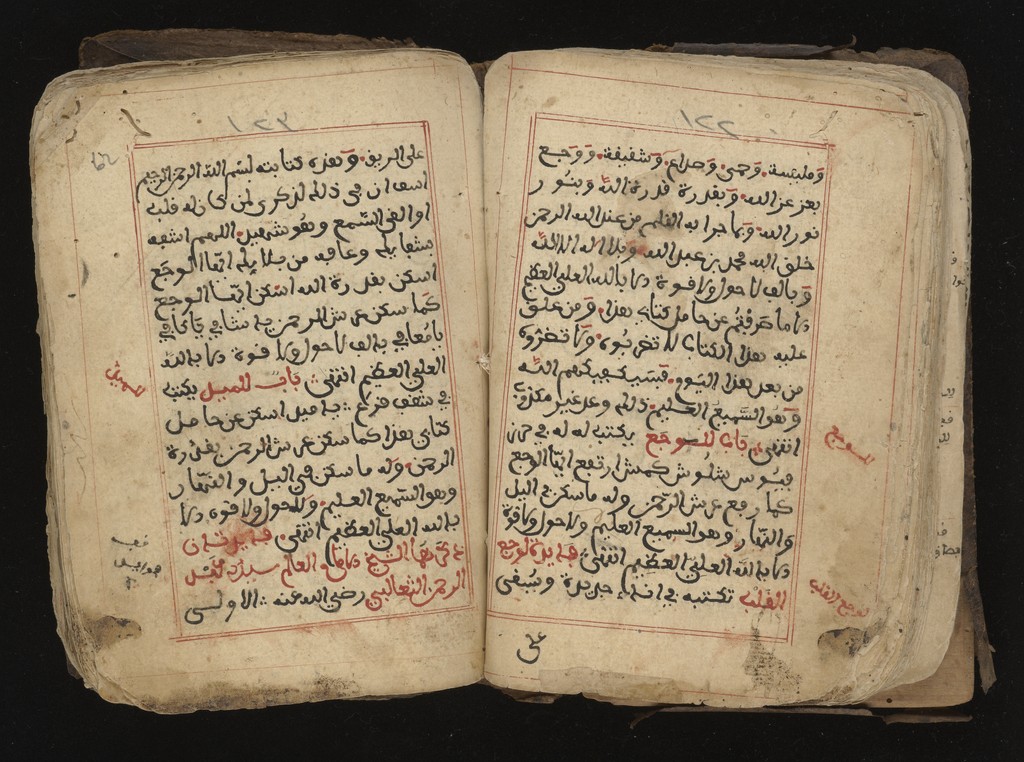 ١٢٢
ومليسة وحمى وصداع وشفيفة ووجع
بعز عز الله وبقدرة قدرة الله وبنور
نور الله وبما جرا به القلم من عند الله الى
خلق الله محمد بن عبد الله وبلا اله الا الله
وبالف لا حول ولا قوة الا بالله العلي العظيم
الا ما صرفتم عن حامل كتابي هذا ومن علق
عليه هذا الكتاب لا تقربوه ولا تضروه
من بعد هذا اليوم فسيكفيكهم الله
وهو السميع العليم ذلك وعد غير مكذوب
انتهى باب للوجع يكتب له في حرز
شلوش كمش ارتفع ايها الوجع
كما رفع عرش الرحمن وله ما سكن في اليل
والنهار وهو السميع العليم ولا حول ولا قوة
الا بالله العلي العظيم انتهى فايدة لوجع
القلب تكتبه في اناء جديد ويسقى
على
للوجع
لوجع القلب
١٢٣
على الريق وهذه كتابته بسم الله الرحمن الرحيم
ان في ذلك لذكرى لمن كان له قلب
او القى السمع وهو شهيد اللهم اشفه
بشفايك وعافه من بلايك ايها الوجع
اسكن بقدرة الله اسكن ايها الوجع
كما سكن عرش الرحمن يا شافي يا كافي
يا معافي بالف لا حول ولا قوة الا بالله
العلي العظيم انتهى باب للميل يكتب
في شقف فزع يا ميل اسكن عن حامل
كتابي هذا كما سكن عرش الرحمن بقدرة
الرحمن وله ما سكن في اليل والنهار
وهو السميع العليم ولا حول ولا قوة الا
بالله العلي العظيم انتهى فايدتان
ذكرهما الشيخ العالم سيد عبد
الرحمن الثعالبي رضي الله عنه الاولى